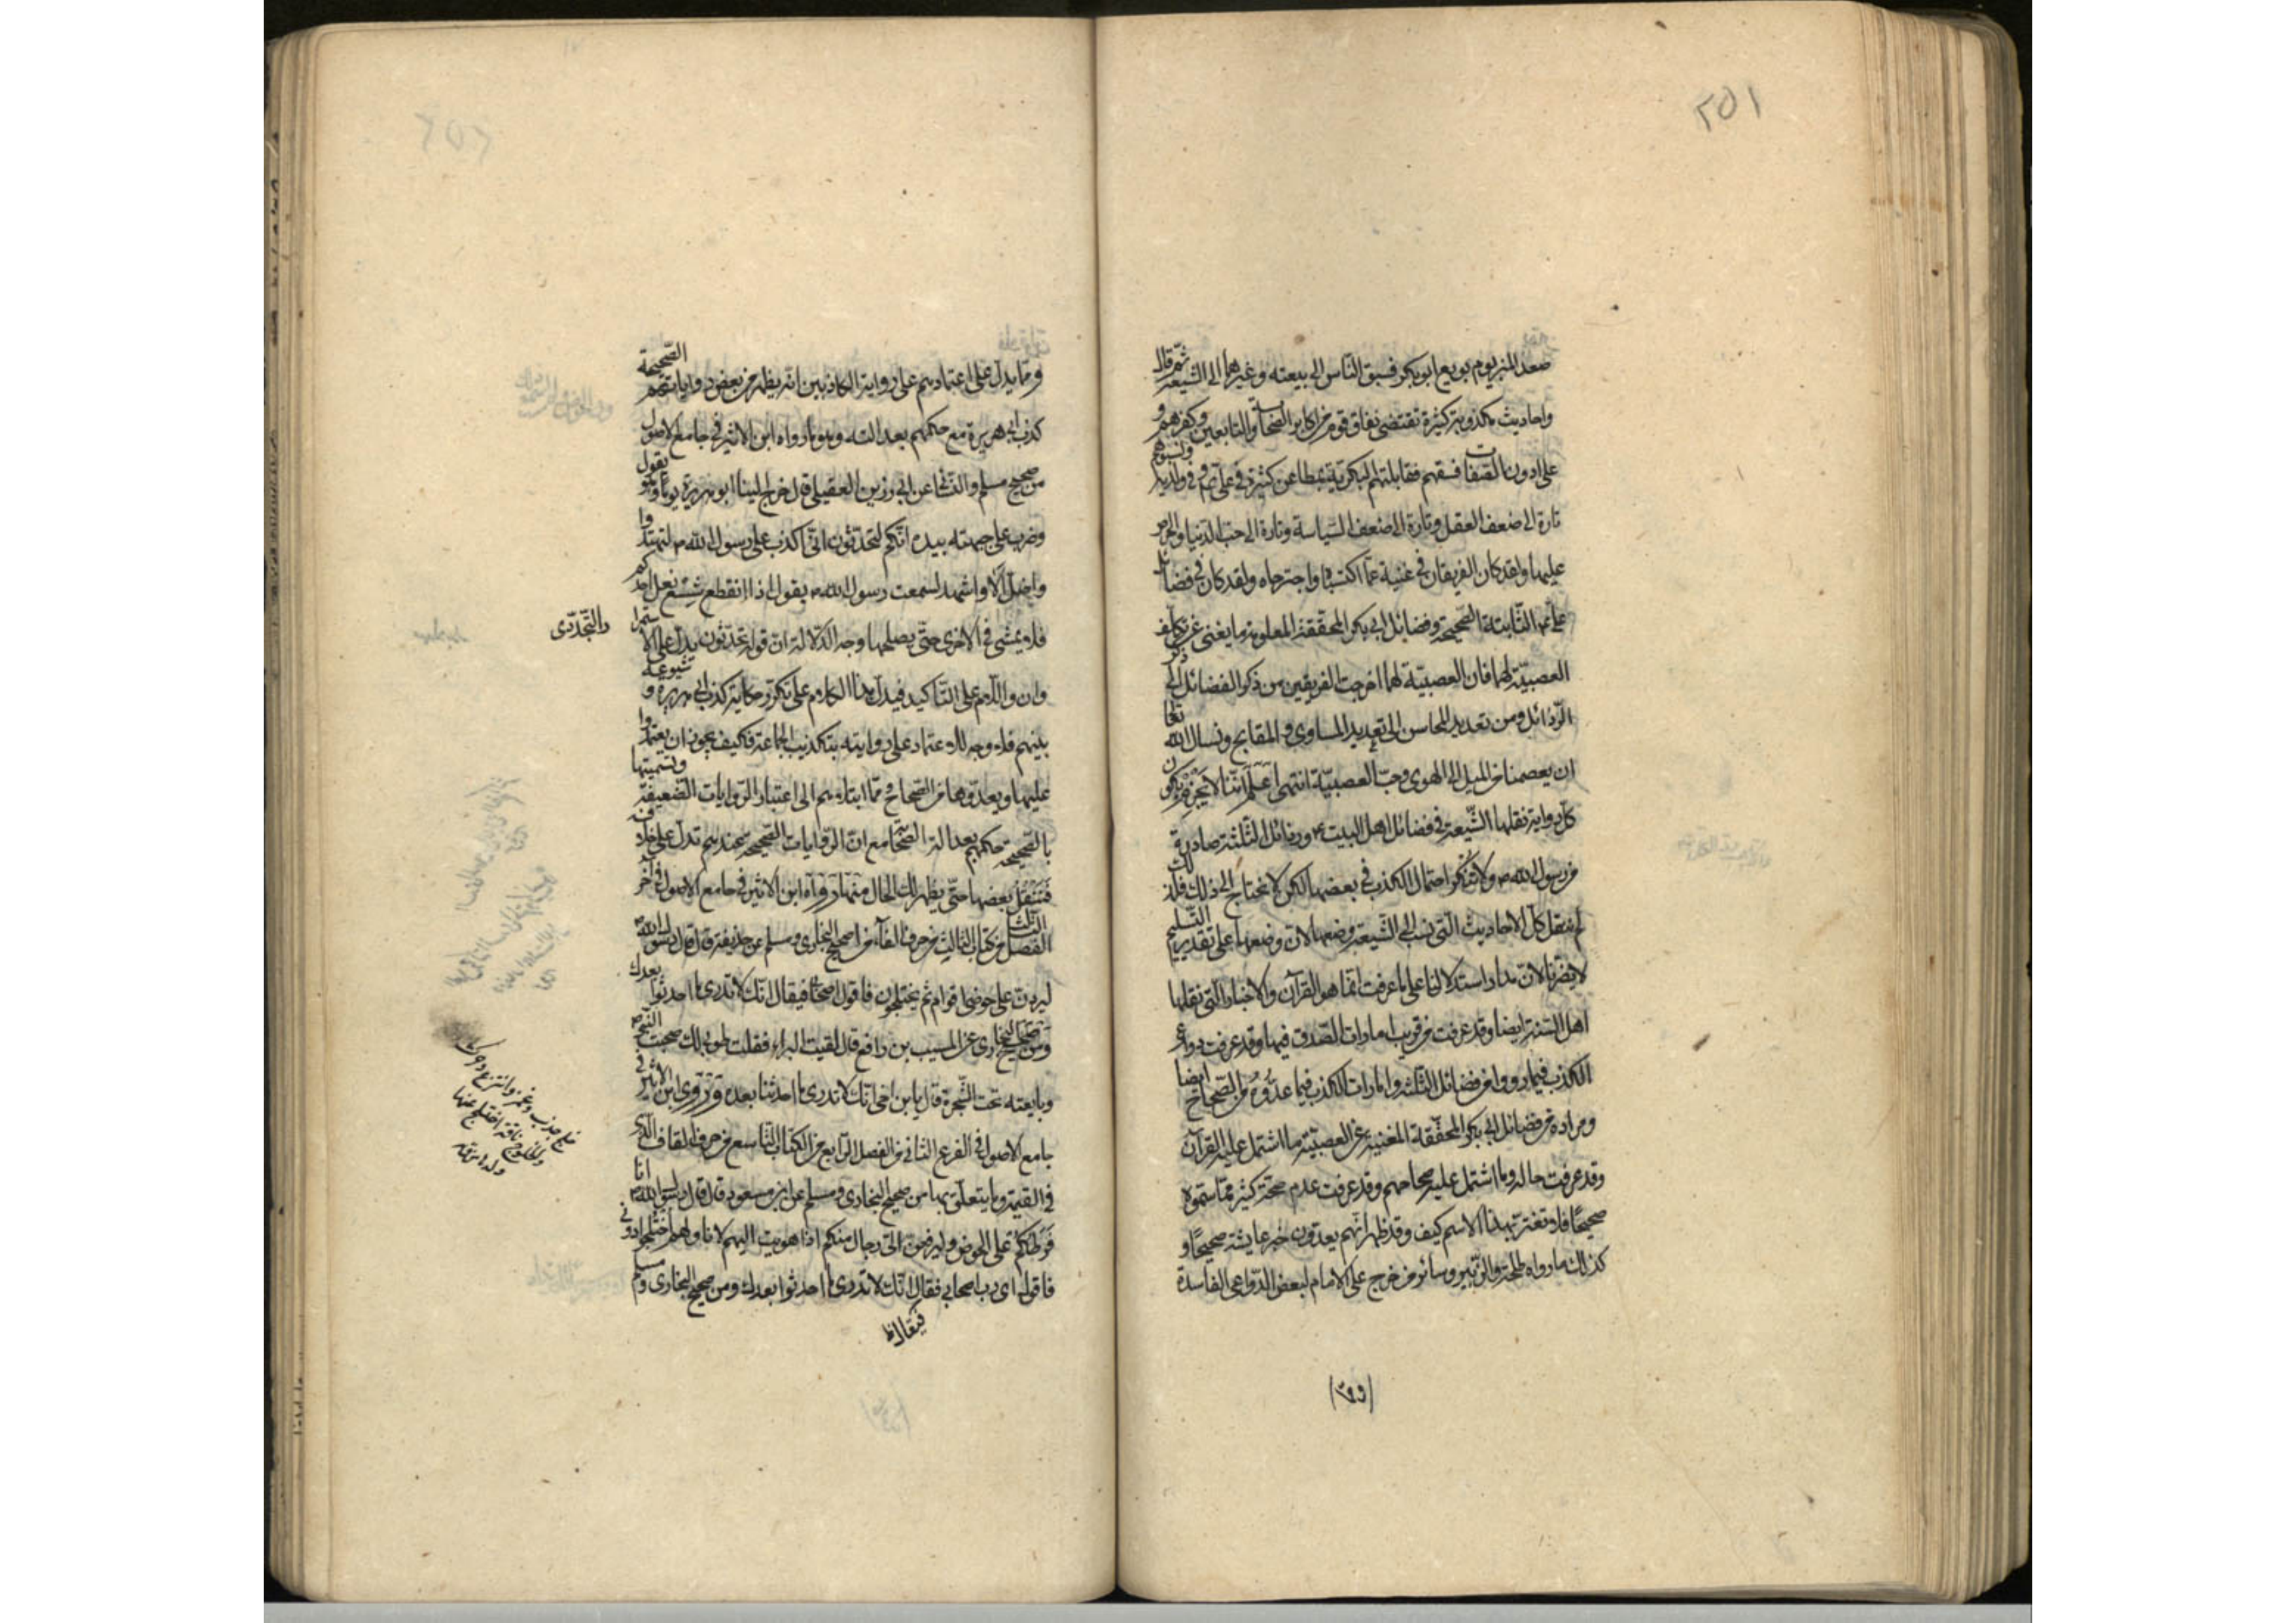 ٢٥١
صعد المنبر يوم بويع ابو بكر فسبق الناس الى بيعته وغيرهما الى الشيعة ثم قال
واحاديث مكذوبة كثيرة تقتضى نفاق قوم من اكابر الصحابة والتابعين وكفرهم و
على ادون الطبقات فسقهم فقابلتهم البكرية بمطاعن كثيرة في على ع وفي ولديه ونسبوهم
تارة الى ضعف العقل وتارة الى ضعف السياسة وتارة الى حب الدنيا والحرص
عليها ولقد كان الفريقان في غنية عما اكتسباه واجترحاه ولقد كان في فضائل
على ع الثابتة الصحيحة وفضائل ابى بكر المحققة المعلومة ما يغنى عن تكلف
العصبية لهما فان العصبية لهما اخرجت الفريقين من ذكر الفضائل الى ذكر
الرذائل ومن تعديد المحاسن الى تعديد المساوى والمقابح ونسال الله تعالى
ان يعصمنا من الميل الى الهوى وحب العصبية انتهى اعلم اننا لا نجزم بكون
كل رواية نقلها الشيعة في فضائل اهل البيت ع ورذائل الثلثة صادرة
من رسول الله ص ولا ننكر احتمال الكذب في بعضها لكن لا نحتاج الى ذلك فلذلك
لم ننقل كل الاحاديث التي نسب الى الشيعة وضعها لان وضعها على تقدير التسليم
لا يضرنا لان مدار استدلالنا على ما عرفت انما هو القرآن والاخبار التي نقلها
اهل السنة ايضا وقد عرفت من قريب امارات الصدق فيها وقد عرفت دواعى
الكذب فيما رووا من فضائل الثلثة وامارات الكذب فيما عدوه من الصحاح ايضا
ومراده من فضائل ابى بكر المحققة المغنية عن العصبية ما اشتمل عليه القرآن
وقد عرفت حاله وما اشتمل عليه صحاحهم وقد عرفت عدم صحة كثير مما سموه
صحيحا فلا تغتر بهذا الاسم كيف وقد ظهر انهم يعدون خبر عايشه صحيحا و
كذلك ما رواه طلحة والزبير وسائر من خرج على الامام لبعض الدواعى الفاسدة
ومما يدل على اعتمادهم على رواية الكاذبين انه يظهر من بعض رواياتهم الصحيحة
كذب ابى هريرة مع حكمهم بعدالته وهو ما رواه ابن الاثير في جامع الاصول
من صحيح مسلم والنسائى عن ابى رزين العقيلى قال خرج الينا ابو هريرة يوما وهو يقول
وضرب على جبهته بيده انكم لتحدثون انى اكذب على رسول الله ص لتهتدوا
واضل الا واشهد لسمعت رسول الله ص يقول اذا انقطع شسع نعل احدكم
فلا يمشى في الاخرى حتى يصلحها وجه الدلالة ان قوله تحدثون يدل على الاستمرار
والتجددى
وان واللام على التاكيد فيدل هذا الكلام على تكرر حكاية كذب ابى هريرة و شيوعه
بينهم فلا وجه للاعتماد على روايته بتكذيب الجماعة فكيف يجوز ان يعتمدوا
عليها ويعدوها من الصحاح ومما ابتلاهم الى اعتبار الروايات الضعيفة وتسميتها
بالصحيحة حكمهم بعدالة الصحابة مع ان الروايات الصحيحة عندهم تدل على خلافه
فننقل بعضها حتى يظهر لك الحال منها ما رواه ابن الاثير في جامع الاصول في آخر
الفصل الثالث من كتاب الثالث من حرف الفاء من صحيح البخارى ومسلم عن حذيفة قال قال رسول الله ص
ليردن على حوضى اقوام ثم يختلجون فاقول اصحابى فيقال انك لا تدرى ما احدثوا بعدك
ومن صحيح البخارى عن المسيب بن رافع قال لقيت البراء فقلت طوبى لك صحبت النبى ص
وبايعته تحت الشجرة قال يا بن اخى انك لا تدرى ما احدثنا بعده وروى ابن الاثير في
جامع الاصول في الفرع الثانى من الفصل الرابع من الكتاب التاسع من حرف القاف الذى
في القيمة وما يتعلق بها من صحيح البخارى ومسلم عن ابن مسعود قال قال رسول الله ص انا
فرطكم على الحوض وليرفعن الى رجال منكم اذا هويت اليهم لاناولهم اختلجوا دونى
فاقول اى رب اصحابى فقال انك لا تدرى ما احدثوا بعدك ومن صحيح البخارى ومسلم
فيقال ظ
خلج جذب وغمز وانتزع وحرك